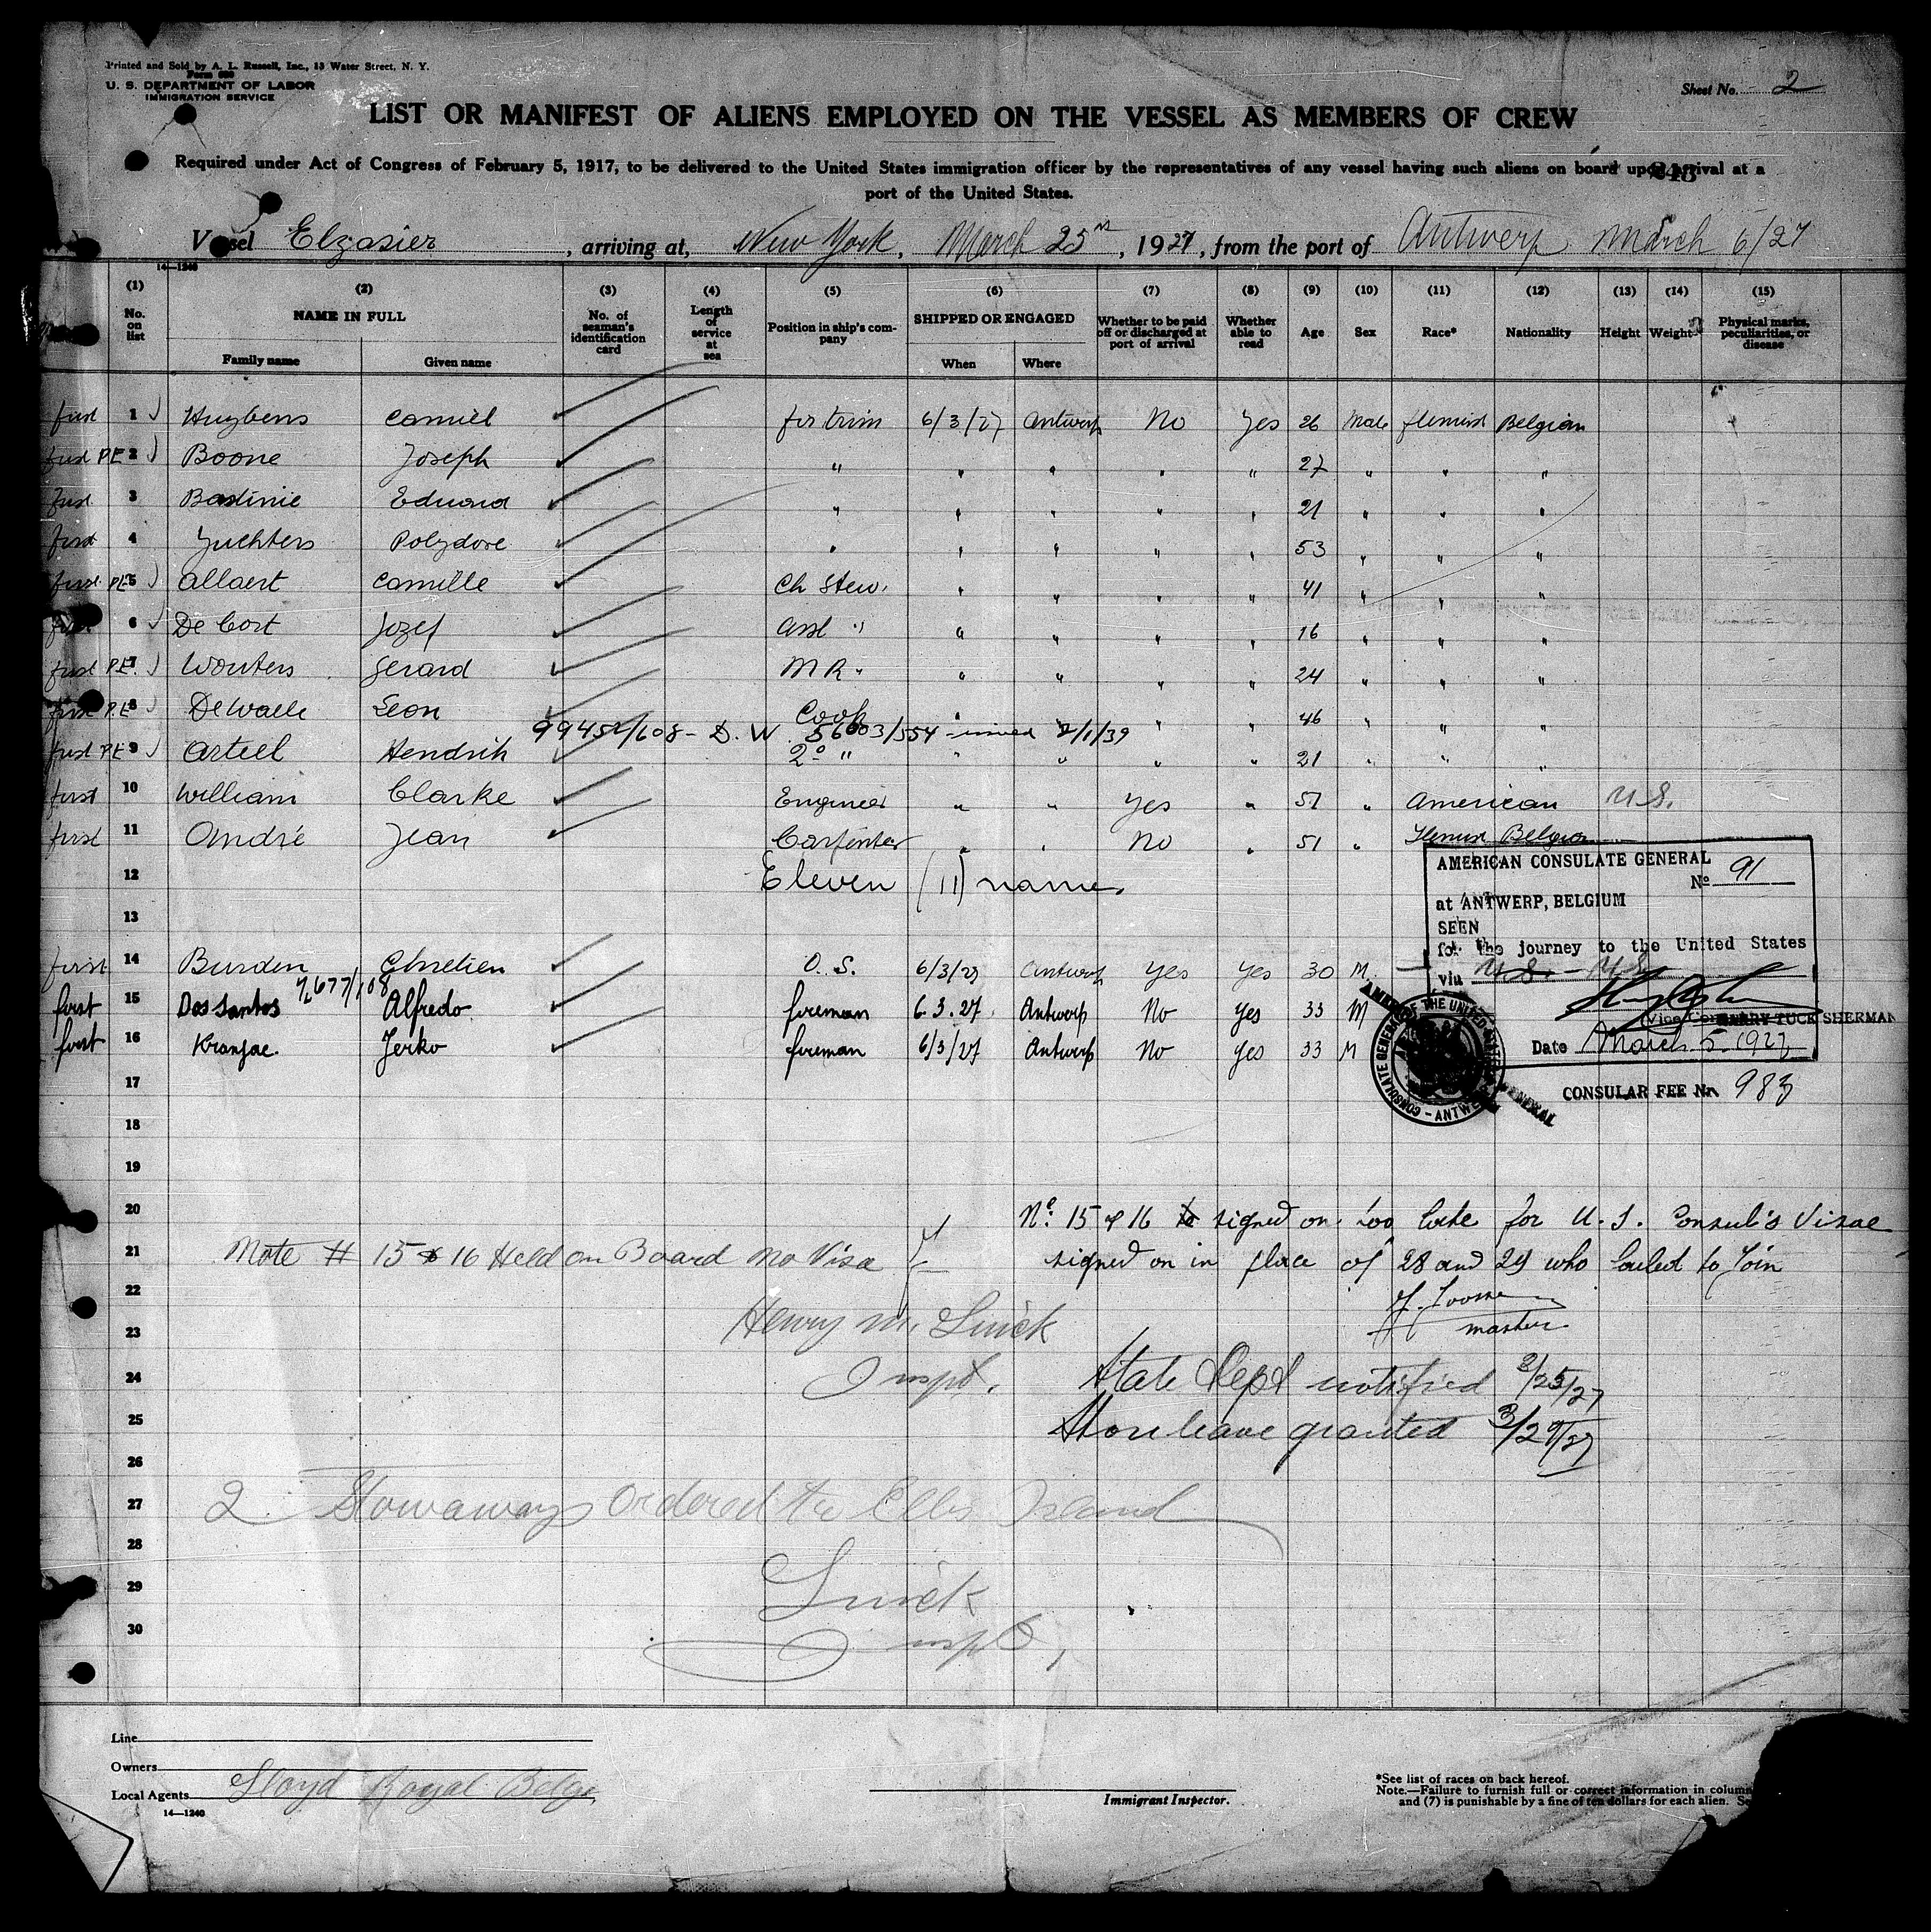 Printed and Sold by A. L. Russell, Inc., 13 Water Street, N. Y.
Form 680
U. S. DEPARTMENT OF LABOR
IMMIGRATION SERVICE
Sheet No. 2
LIST OR MANIFEST OF ALIENS EMPLOYED ON THE VESSEL AS MEMBERS OF CREW
Required under Act of Congress of February 5, 1917, to be delivered to the United States immigration officer by the representatives of any vessel having such aliens on board upon arrival at a
port of the United States.
Vessel Elzasier, arriving at, New York, March 25th, 1927, from the port of Antwerp March 6/27
14—1240
(1) (2) (3) (4) (5) (6) (7) (8) (9) (10) (11) (12) (13) (14) (15)
No. on list NAME IN FULL No. of seaman's identification card Length of service at sea Position in ship's company SHIPPED OR ENGAGED Whether to be paid off or discharged at port of arrival Whether able to read Age Sex Race* Nationality Height Weight Physical marks, peculiarities, or disease
Family name Given name When Where
first 1 Huybens Camiel fir trim 6/3/27 Antwerp No Yes 26 Male flemish Belgian
first P.E 2 Boone Joseph " " " " " 27 " " "
first 3 Bastinie Eduard " " " " " 21 " " "
first 4 Juchters Polydore " " " " " 53 " " "
first PE 5 Allaert Camille Ch Stew. " " " " 41 " " "
first 6 De Cort Jozef Asst " " " " " 16 " " "
first P.E. 7 Wouters Gerard M R. " " " " 24 " " "
first P.E 8 DeWaele Leon Cook " " " " 46 " " "
D. W. 56003/554 - issued 2/1/39
first P.E 9 Arteel Hendrik 2° " " " " " 21 " " "
first 10 William Clarke Engineer " " Yes " 51 " American U.S.
first 11 André Jean Carpenter " " No " 51 " Flemish Belgian
12 Eleven (11) names
13
first 14 Burden Chretien O. S. 6/3/27 Antwerp Yes Yes 30 M.
first 15 Dos Santos Alfredo fireman 6.3.27 Antwerp No Yes 33 M
first 16 Kranjac Jerko fireman 6/3/27 Antwerp No Yes 33 M
AMERICAN CONSULATE GENERAL
No 91
at ANTWERP, BELGIUM
SEEN
for the journey to the United States
via
Vice Consul HARRY TUCK SHERMAN
Date March 5 1927
CONSULAR FEE No 983
17
18
19
20 No. 15 & 16 signed on too late for U.S. Consul's Visae
21 Note # 15 & 16 Held on Board no Visa signed on in place of 28 and 29 who failed to Join
22
master
23 Henry M. Quick
24 Inspt. State Dept notified 3/25/27
25 Shore leave granted 3/29/27
26
27 2 Stowaways ordered to Ellis Island
28
29 Quick
30 Inspt,
Line
Owners
Local Agents Lloyd Royal Belge
14—1240
Immigrant Inspector.
*See list of races on back hereof.
Note.—Failure to furnish full or correct information in colum
and (7) is punishable by a fine of ten dollars for each alien. Se